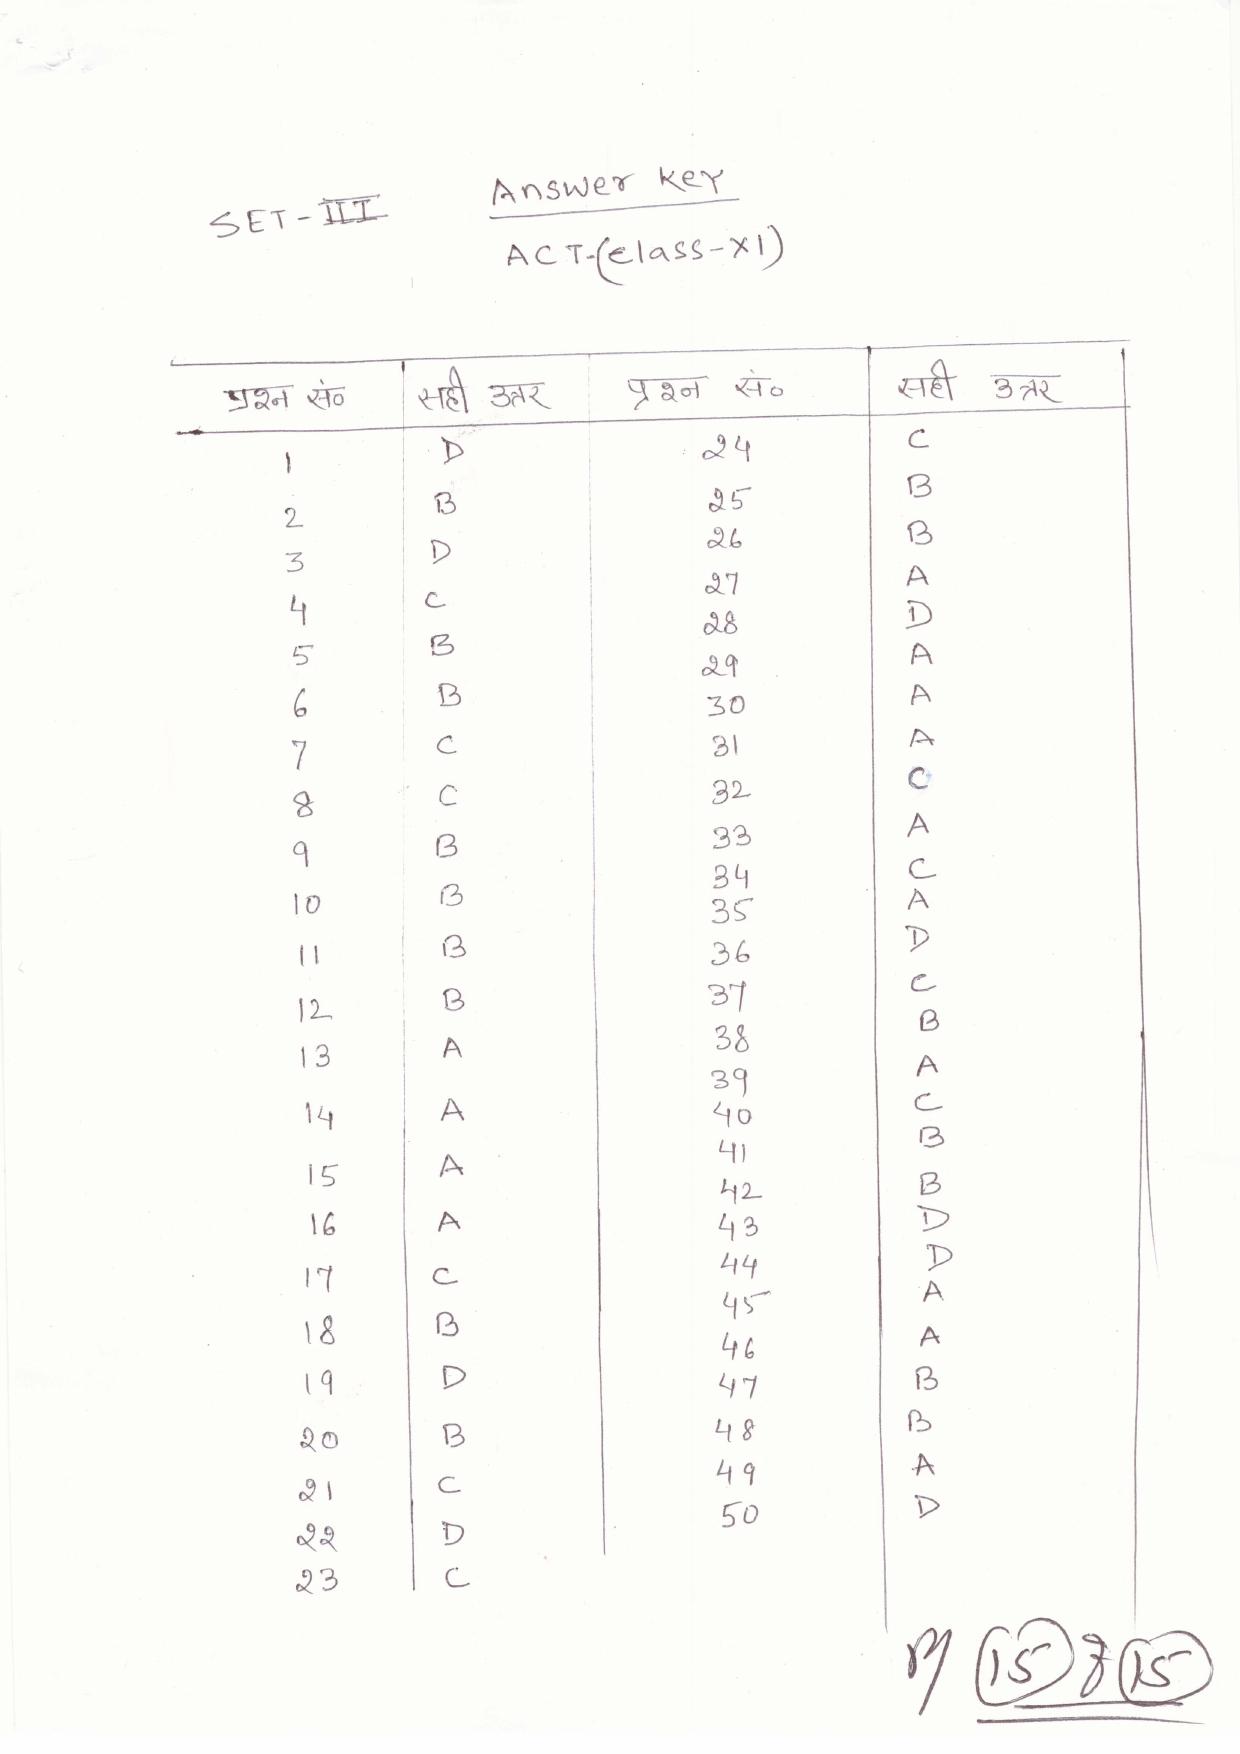 Answer Key
SET-III
ACT-(Class-XI)
प्रश्न सं० सही उत्तर प्रश्न सं० सही उत्तर
1 D 24 C
2 B 25 B
3 D 26 B
4 C 27 A
5 B 28 D
6 B 29 A
7 C 30 A
8 C 31 A
9 B 32 C
10 B 33 A
11 B 34 C
12 B 35 A
13 A 36 D
14 A 37 C
15 A 38 B
16 A 39 A
17 C 40 C
18 B 41 B
19 D 42 B
20 B 43 D
21 C 44 D
22 D 45 A
23 C 46 A
47 B
48 B
49 A
50 D
15 15